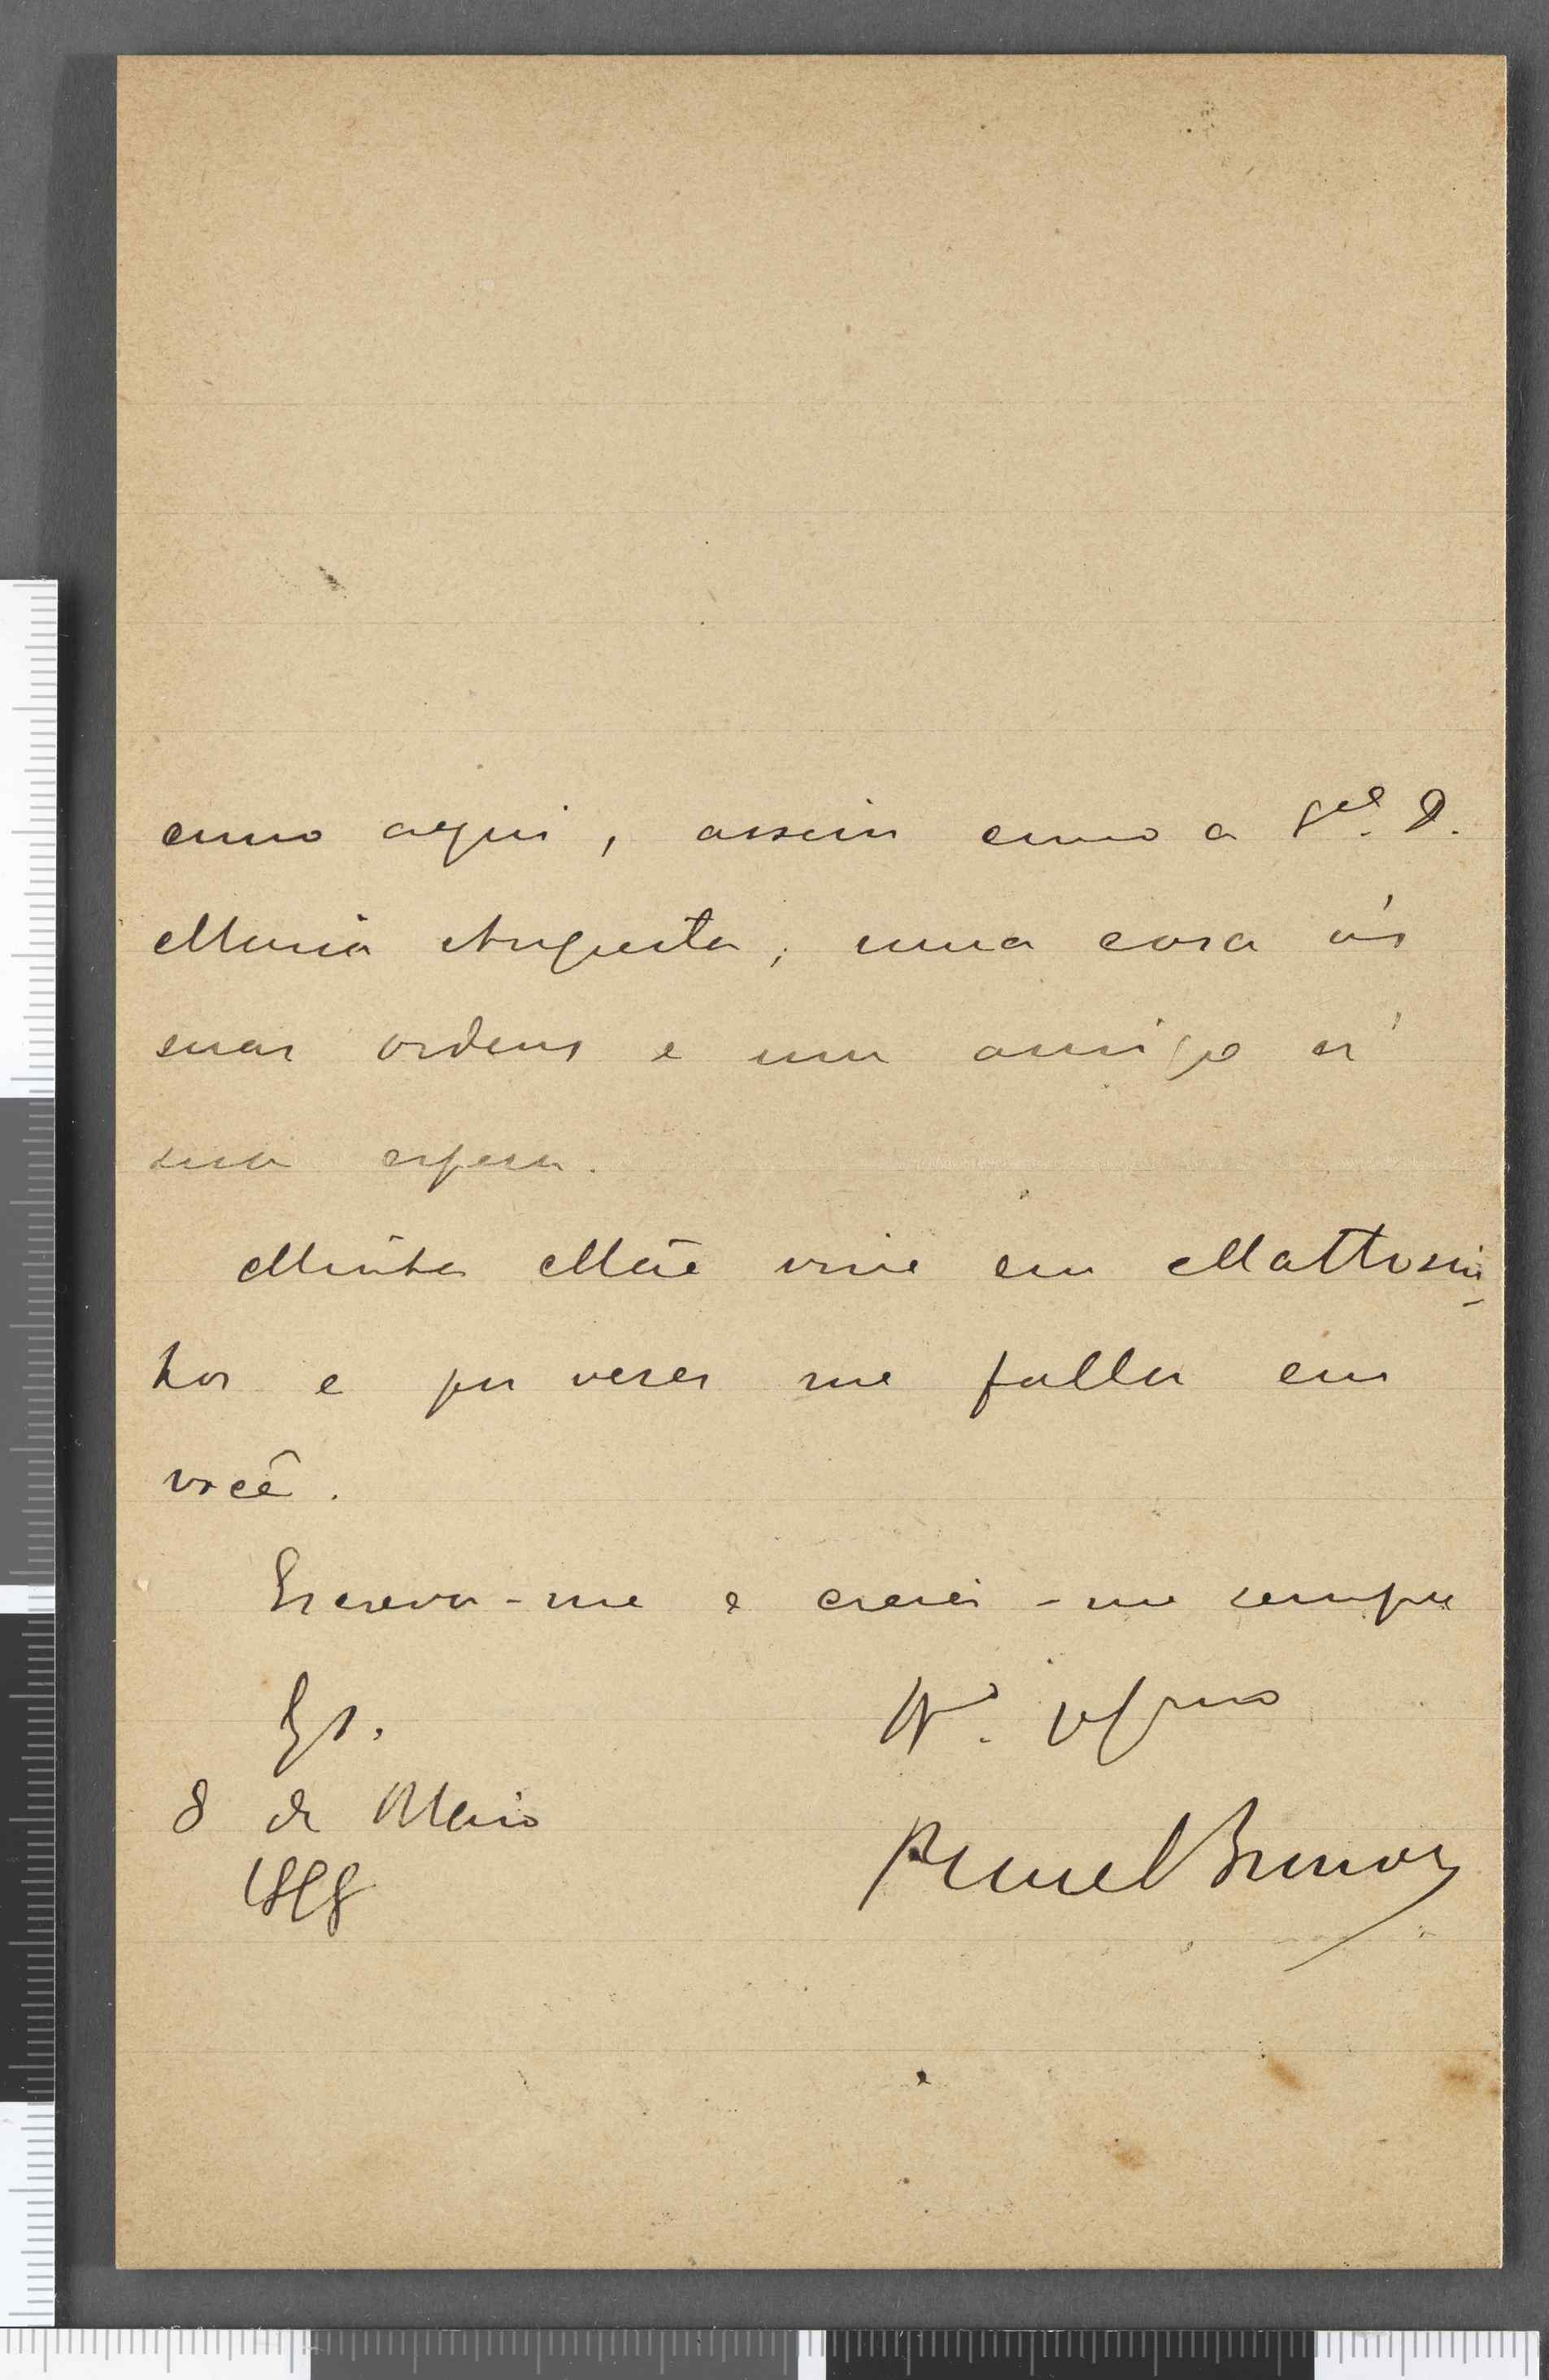 como aqui, assim como a Snr.ª D.
Maria Augusta, uma casa ás
suas ordens e um amigo á
sua espera.
Minha Mãe vive em Mattosi-
hos e por vezes me falla em
você.
Escreva-me e creia-me sempre
8 de Maio